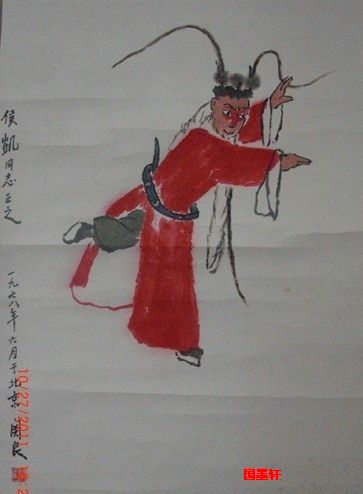 侯凯同志正之
一九七八年六月于北京 关良
10/27/2011
国墨轩